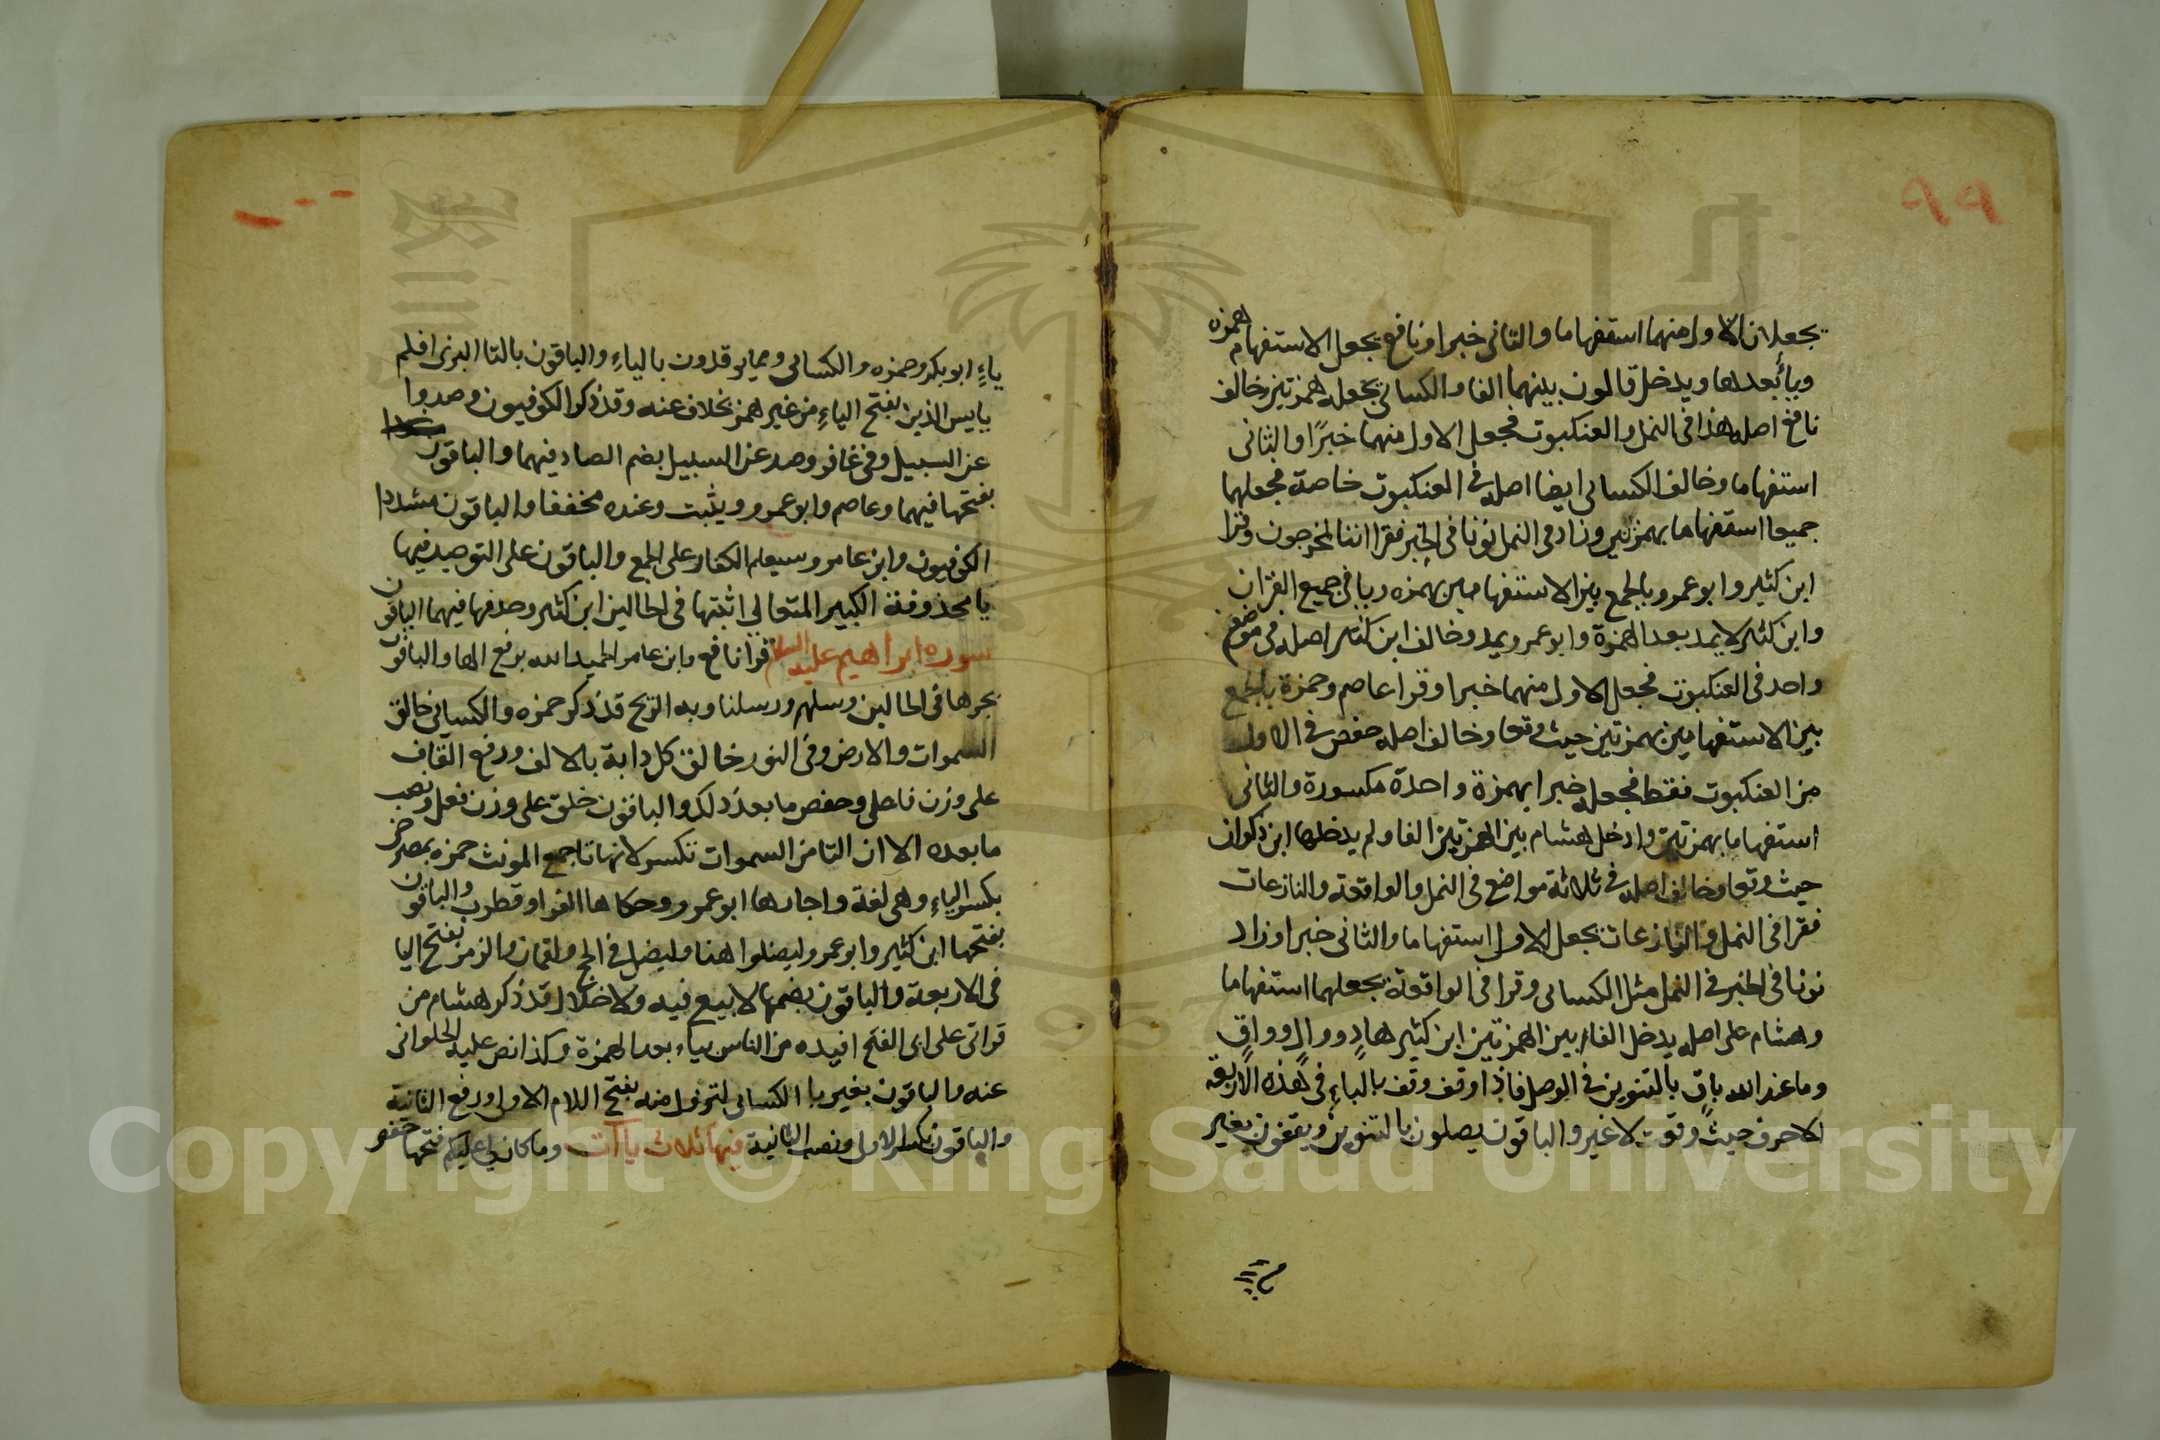 ٩٩
يجعلان الاول منهما استفهاما والثاني خبرا ونافع يجعل الاستفهام بهمزه
وياء بعدها ويدخل قالون بينهما الفا والكسائي يجعله همزتين وخالف
نافع اصله هذا في النمل والعنكبوت فجعل الاول منهما خبرًا والثاني
استفهاما وخالف الكسائي ايضا اصله في العنكبوت خاصة فجعلهما
جميعا استفهاما بهمزتين وزاد في النمل نونا في الخبر فقرا اننا لمخرجون وقرا
ابن كثير وابو عمرو بالجمع بين الاستفهامين بهمزه ويا في جميع القران
وابن كثير لا يمد بعد الهمزة وابو عمرو يمد وخالف ابن كثير اصله في موضع
واحد في العنكبوت فجعل الاول منهما خبرا وقرا عاصم وحمزة بالجمع
بين الاستفهامين بهمزتين حيث وقعا وخالف اصله حفص في الاول
من العنكبوت فقط فجعله خبرا بهمزة واحدة مكسورة والثاني
استفهاما بهمزتين وادخل هشام بين الهمزتين الفا ولم يدخلها ابن ذكوان
حيث وقعا وخالف اصله في ثلاثة مواضع في النمل والواقعة والنازعات
فقرا في النمل والنازعات يجعل الاول استفهاما والثاني خبرا وزاد
نونا في الخبر في النمل مثل الكسائي وقرا في الواقعة يجعلهما استفهاما
وهشام على اصله يدخل الفا بين الهمزتين ابن كثير هادٍ ووالٍ وواقٍ
وما عند الله باقٍ بالتنوين في الوصل فاذا وقف وقف بالياء في هذه الاربعة
الاحرف حيث وقعت لا غير والباقون يصلون بالتنوين ويقفون بغير
ياءٍ ابو بكر وحمزه والكسائي ومما يوقدون بالياءِ والباقون بالتا البزي افلم
يايس الذين بفتح الياءِ من غير همز بخلاف عنه وقد ذكر الكوفيون وصدوا
عن السبيل وفي غافر وصد عن السبيل بضم الصاد فيهما والباقون
بفتحها فيهما وعاصم وابو عمرو ويثبت وعنده مخففا والباقون مشددا
الكوفيون وابن عامر وسيعلم الكفار على الجمع والباقون على التوحيد فيها
يا محذوفة الكبير المتعالي اثبتها في الحالين ابن كثير وحذفها فيهما الباقون
سوره ابراهيم عليه السلام قرا نافع وابن عامر الحميد الله برفع الها والباقون
بجرها في الحالين وسلهم ورسلنا وبه الريح قد ذكر حمزه والكسائي خالق
السموات والارض وفي النور خالق كل دابة بالالف ورفع القاف
على وزن فاعل وخفض ما بعد ذلك والباقون خلق على وزن فعل ونصب
ما بعده الا ان التا من السموات تكسر لانها تا جمع المونث حمزه بمصرخي
بكسر الياءِ وهي لغة واجازها ابو عمرو وحكاها الفرا وقطرب والباقون
بفتحها ابن كثير وابو عمرو ليضلوا هنا وليضل في الحج ولقمان والزمر بفتح اليا
في الاربعة والباقون بضمها لا بيع فيه ولا خلال قد ذكر هشام من
قراتي على ابي الفتح افيده من الناس بياء بعد الهمزة وكذا نص عليه الحلواني
عنه والباقون بغير يا الكسائي لتزول منه بفتح اللام الاولى ورفع الثانية
والباقون بكسر الاولى ونصب الثانية فيها ثلاث يآآت وما كان لي عليكم فتحها حفص
Copyright © King Saud University
1957